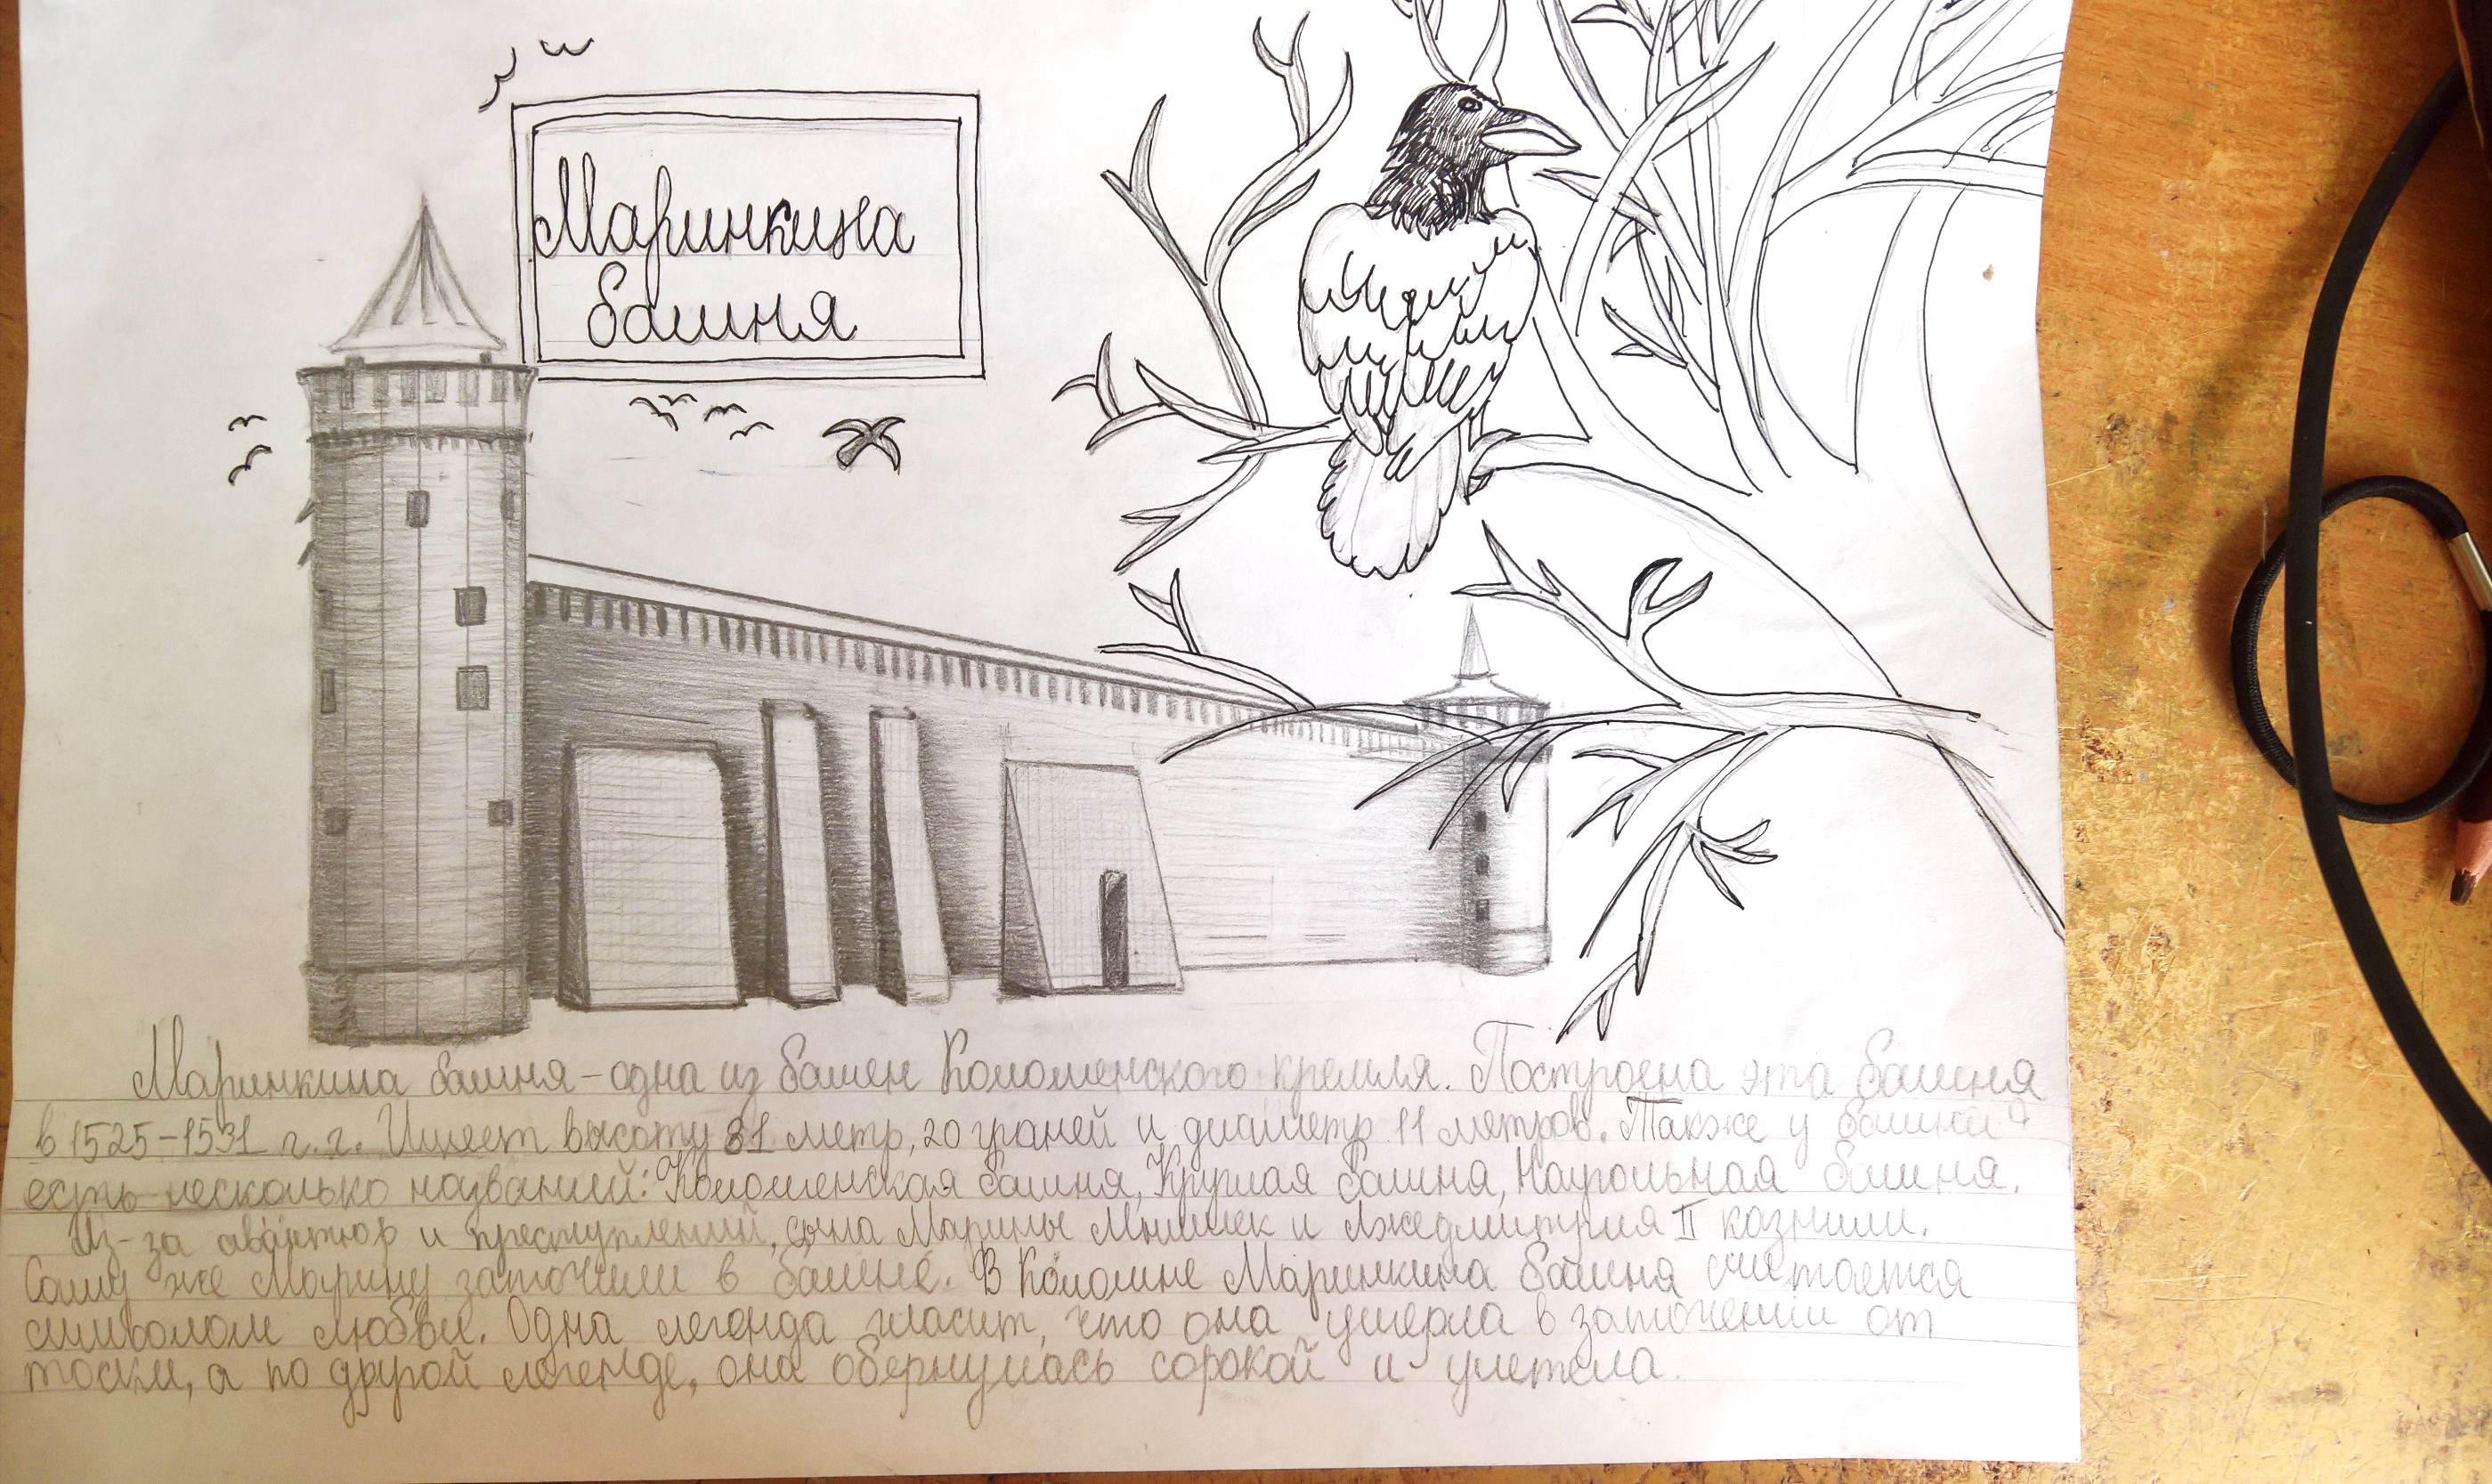 Маринкина
башня
Маринкина башня - одна из башен Коломенского кремля. Построена эта башня
в 1525-1531 г.г. Имеет высоту 31 метр, 20 граней и диаметр 11 метров. Также у башни
есть несколько названий: Коломенская башня, Круглая башня, Наугольная башня.
Из-за авантюр и преступлений, сына Марины Мнишек и Лжедмитрия II казнили.
Саму же Марину заточили в башне. В Коломне Маринкина башня считается
символом любви. Одна легенда гласит, что она умерла в заточении от
тоски, а по другой легенде, она обернулась сорокой и улетела.